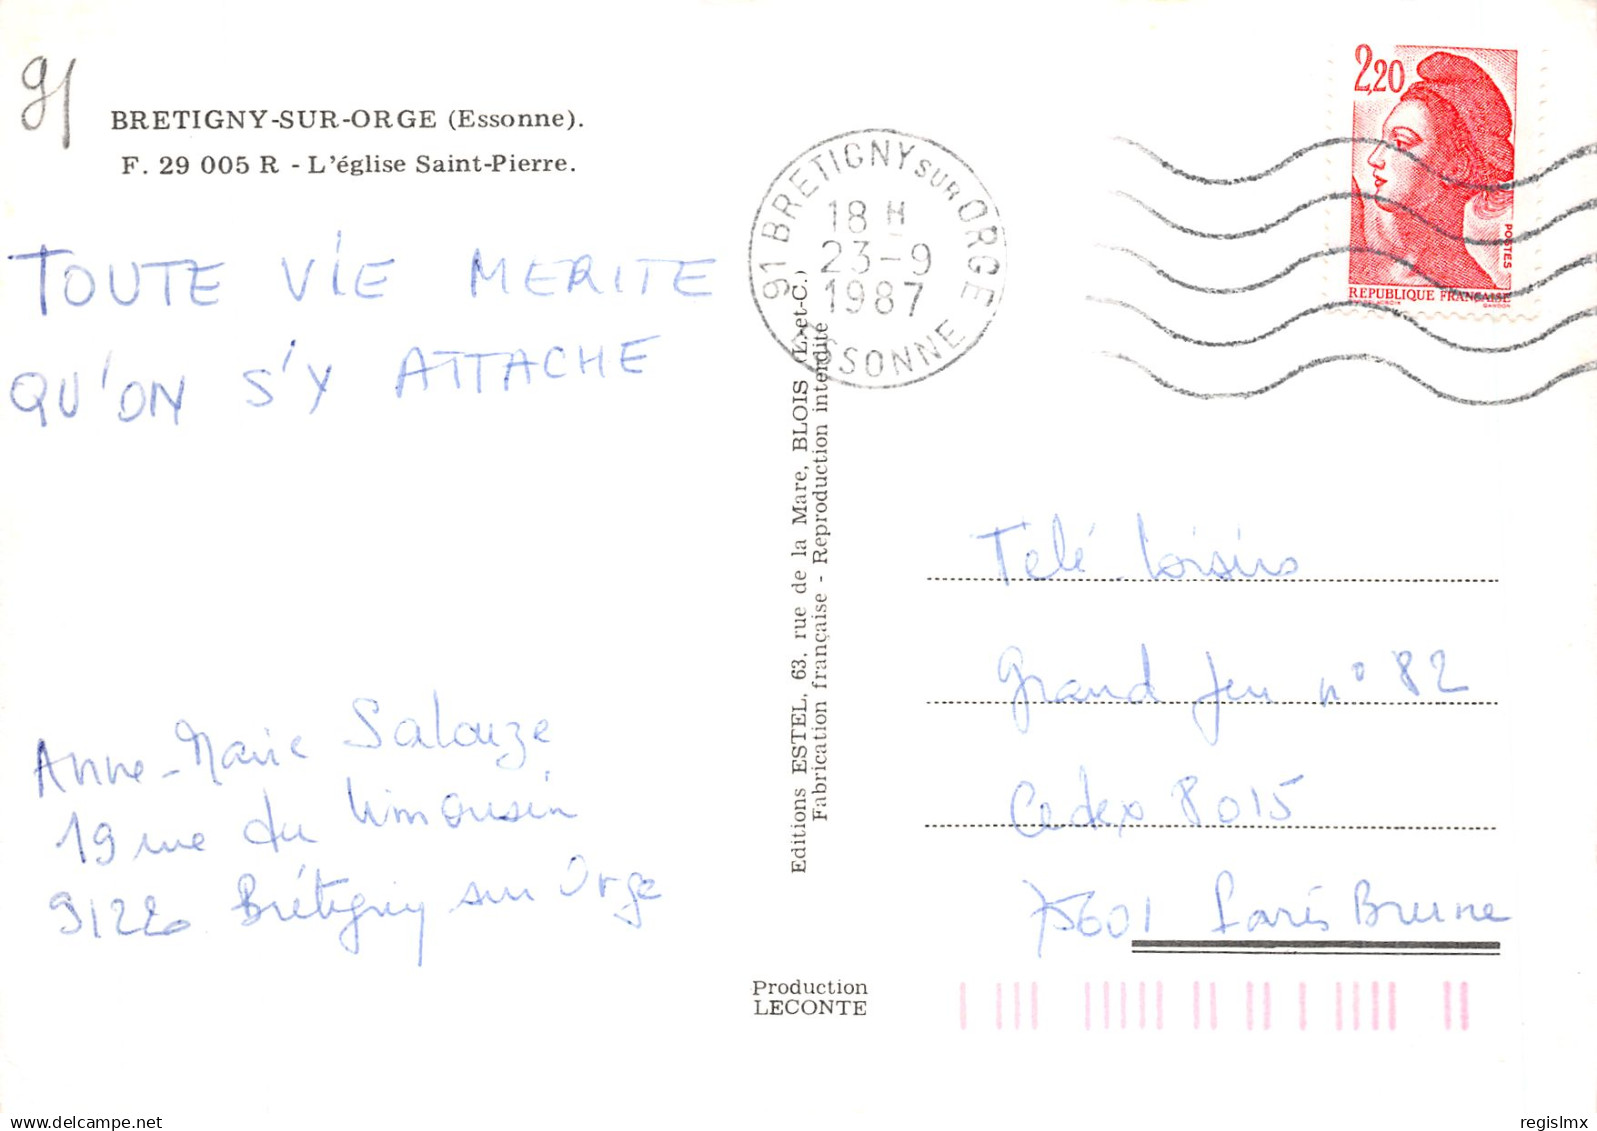 91
BRETIGNY-SUR-ORGE (Essonne).
F. 29 005 R - L'église Saint-Pierre.
TOUTE VIE MERITE
QU'ON S'Y ATTACHE
Anne-Marie Salouze
19 rue du Limousin
91220 Brétigny sur Orge
Editions ESTEL, 63, rue de la Mare, BLOIS (L.-et-C.)
Fabrication française - Reproduction interdite
Production
LECONTE
91 BRETIGNY SUR ORGE
18 H
23-9
1987
ESSONNE
2,20
POSTES
REPUBLIQUE FRANÇAISE
GANDON
Télé Loisirs
Grand Jeu n° 82
Cedex 8015
75601 Paris Brune
delcampe.net
regislmx